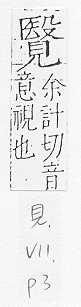 尒計切音
意視也
見.
VII.
P3